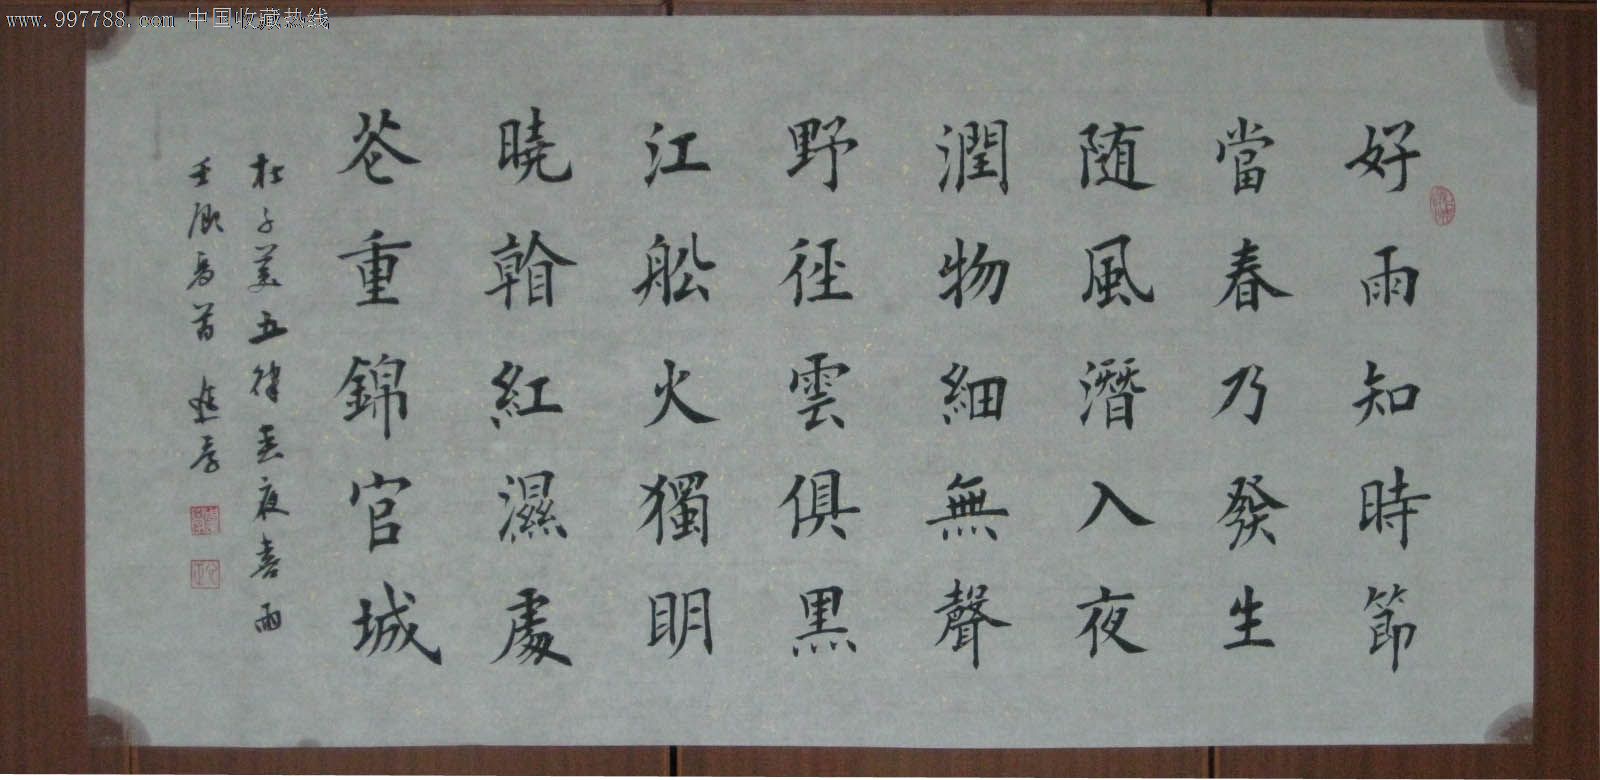 www.997788.com 中国收藏热线
好雨知時節
當春乃發生
随風潛入夜
潤物細無聲
野徑雲俱黑
江船火獨明
曉㫪紅濕處
花重錦官城
杜子美五律春夜喜雨
壬辰